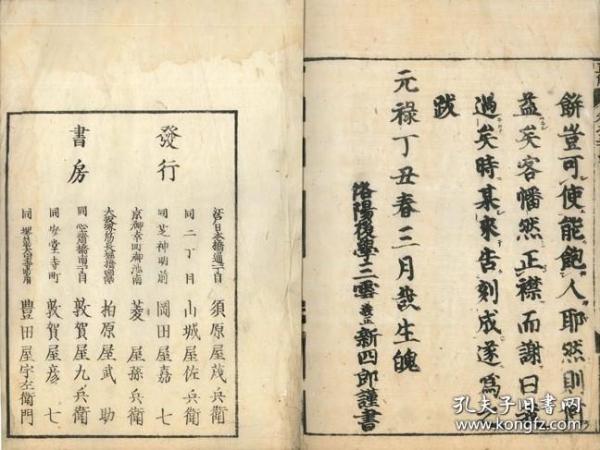 餅豈可使能飽人耶然則何
益矣客幡然正襟而謝曰我
過矣時某來告刻成遂為之
跋
元禄丁丑春三月哉生魄
洛陽後學三雲義正新四郎謹書
發行
書房
江戸日本橋通 須原屋茂兵衛
同二丁目 山城屋佐兵衛
同芝神明前 岡田屋嘉七
京御幸町御池南 菱屋孫兵衛
大坂 柏原屋武助
同心齋橋南 敦賀屋九兵衛
同安堂寺町 敦賀屋彦七
同 豐田屋宇左衛門
孔夫子旧书网
www.kongfz.com